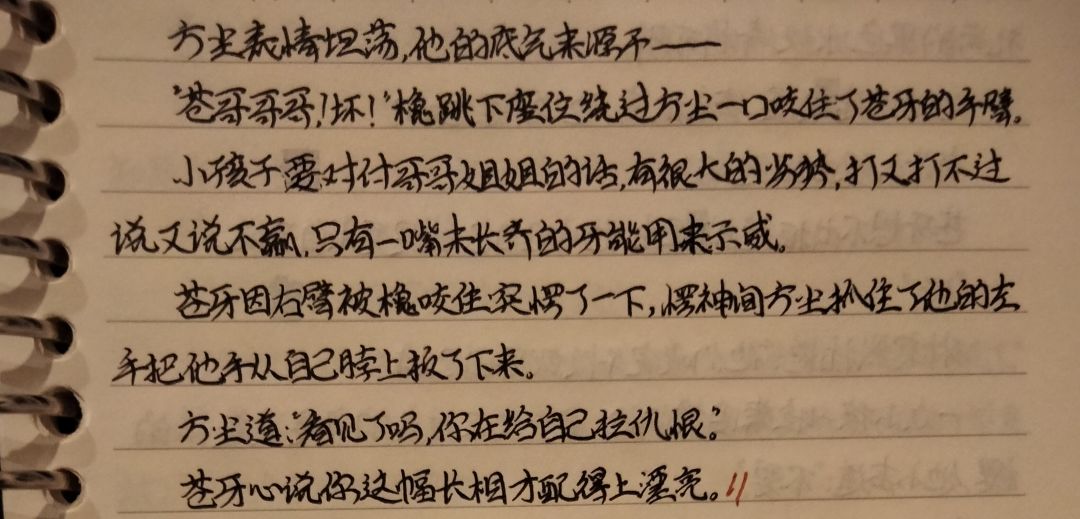 方尘表情坦荡,他的底气来源不——
“苍哥哥哥!坏!”槐跳下座位绕过方尘一口咬住了苍牙的手臂。
小孩子要对付哥哥姐姐的话,有很大的劣势,打又打不过
说又说不赢,只有一嘴未长齐的牙能用来示威。
苍牙因右臂被槐咬住突愣了一下,愣神间方尘抓住了他的左
手把他手从自己脖上扳了下来。
方尘道:“看见了吗,你在给自己拉仇恨。”
苍牙心说你这幅长相才配得上漂亮。